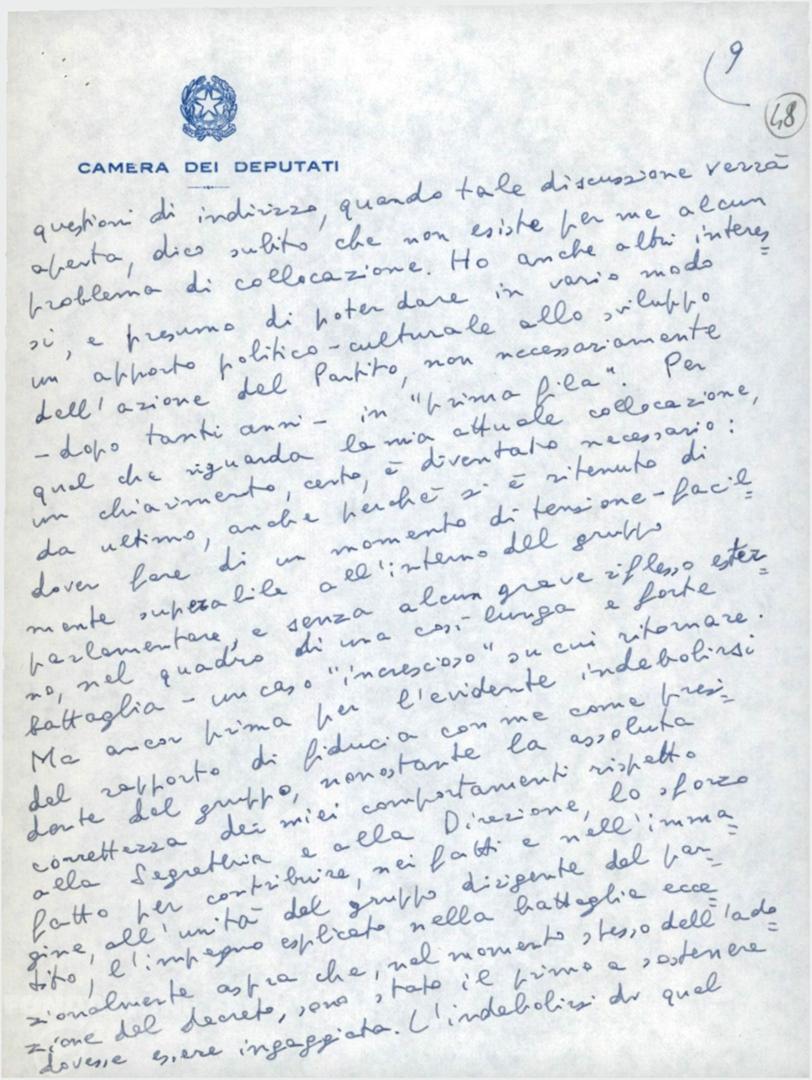 9
48
CAMERA DEI DEPUTATI
questioni di indirizzo, quando tale discussione verrà
aperta, dico subito che non esiste per me alcun
problema di collocazione. Ho anche altri interes=
si, e presumo di poter dare in vario modo
un apporto politico-culturale allo sviluppo
dell'azione del Partito, non necessariamente
- dopo tanti anni - in "prima fila". Per
quel che riguarda la mia attuale collocazione,
un chiarimento, certo, è diventato necessario:
da ultimo, anche perché si è ritenuto di
dover fare di un momento di tensione - facil=
mente superabile all'interno del gruppo
parlamentare, e senza alcun grave riflesso ester=
no, nel quadro di una così lunga e forte
battaglia - un caso "increscioso" su cui ritornare.
Ma ancor prima per l'evidente indebolirsi
del rapporto di fiducia con me come presi=
dente del gruppo, nonostante la assoluta
correttezza dei miei comportamenti rispetto
alla Segreteria e alla Direzione, lo sforzo
fatto per contribuire, nei fatti e nell'imma=
gine, all'unità del gruppo dirigente del par=
tito, l'impegno esplicato nella battaglia ecce=
zionalmente aspra che, nel momento stesso dell'ado=
zione del decreto, sono stato il primo a sostenere
dovesse essere ingaggiata. L'indebolirsi di quel